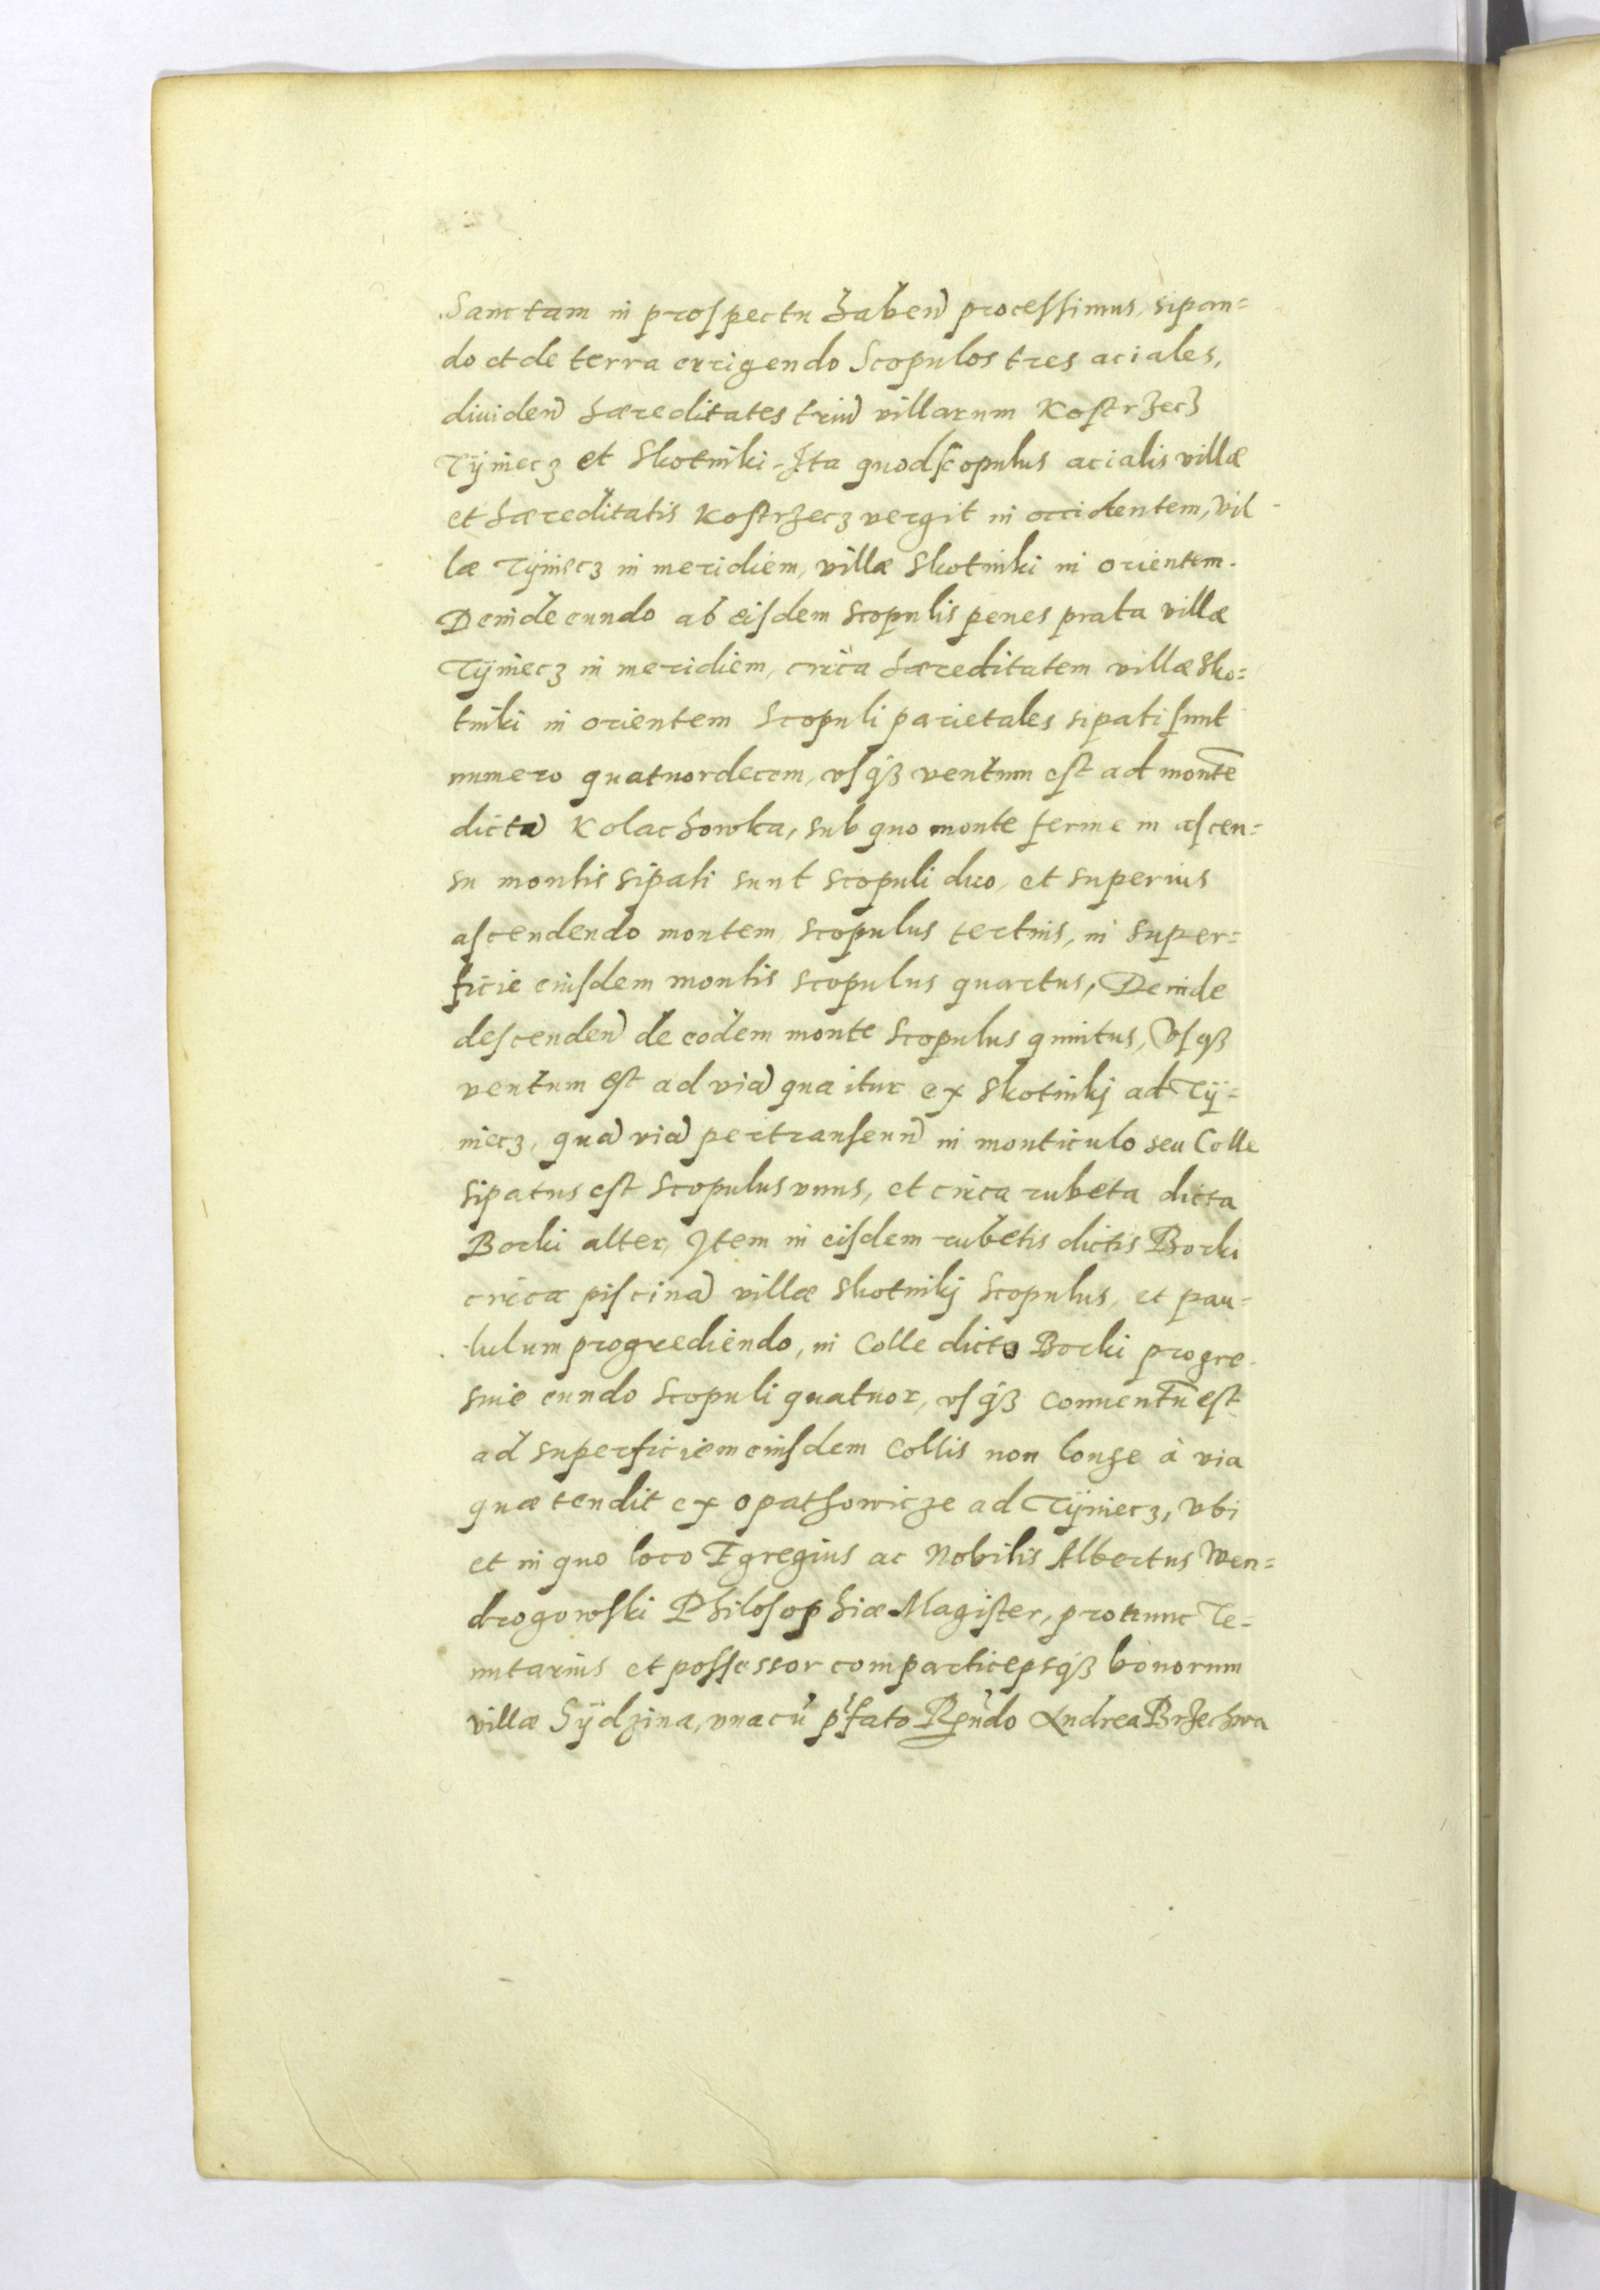 Sanctam in prospectu haben̄ processimus, sipan=
do et de terra errigendo Scopulos tres aciales,
diuiden̄ hæreditates triū villarum Kostrzecz
Tÿniecz et Skotniki. Ita quod scopulus acialis villæ
et hæreditatis Kostrzecz vergit in occidentem, vil
læ Tÿniecz in meridiem, villæ Skotniki in orientem.
Deinde eundo ab eisdem scopulis penes prata villæ
Tÿniecz in meridiem, circa hæreditatem villæ Sko=
tniki in orientem Scopuli parietales sipati sunt
numero quatuordecem, vsq₃ ventum est ad montē
dictā Kolachowka, sub quo monte ferme in ascen=
su montis sipati sunt scopuli duo, et superius
ascendendo montem scopulus tertius, in super=
ficie eiusdem montis scopulus quartus, Deinde
descenden̄ de eodem monte Scopulus quintus, Vsq₃
ventum est ad viā qua itur ex Skotnikj ad Tÿ=
niecz, quā viā pertranseun̄ in monticulo seu Colle
sipatus est scopulus vnus, et circa rubeta dicta
Borki alter, Item in eisdem rubetis dictis Borki
circa piscinā villæ Skotnikj Scopulus, et pau=
lulum progrediendo, in Colle dicto Borki progre
siue eundo scopuli quatuor, vsq₃ conuentū est
ad superficiem eiusdem Collis non longe à via
quæ tendit ex Opathowicze ad Tÿniecz, vbi
et in quo loco Egregius ac Nobilis Albertus Wen=
drogowski Philosophiæ Magister, pro tunc Te=
nutarius et possessor comparticepsq₃ bonorum
villæ Sÿdzina, vnacū p̄fato Rn̄do Andrea Brzechwa